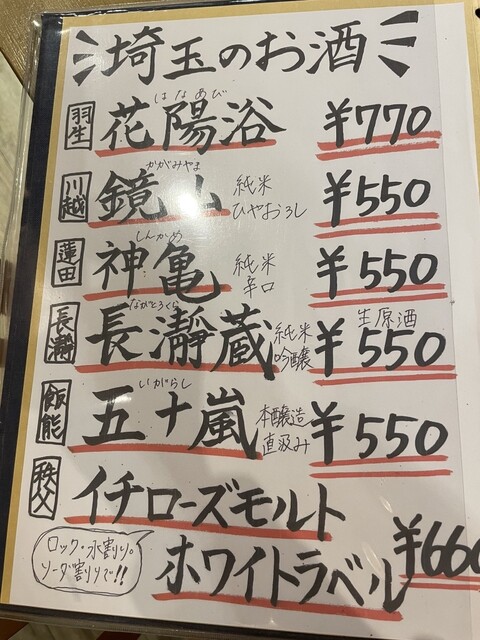 埼玉のお酒
羽生 花陽浴 はなあび ¥770
川越 鏡山 かがみやま 純米 ひやおろし ¥550
蓮田 神亀 しんかめ 純米 辛口 ¥550
長瀞 長瀞蔵 ながとろくら 純米 吟醸 生原酒 ¥550
飯能 五十嵐 いがらし 本醸造 直汲み ¥550
秩父 イチローズモルト
ホワイトラベル ¥660
ロック・水割り。
ソーダ割りで!!